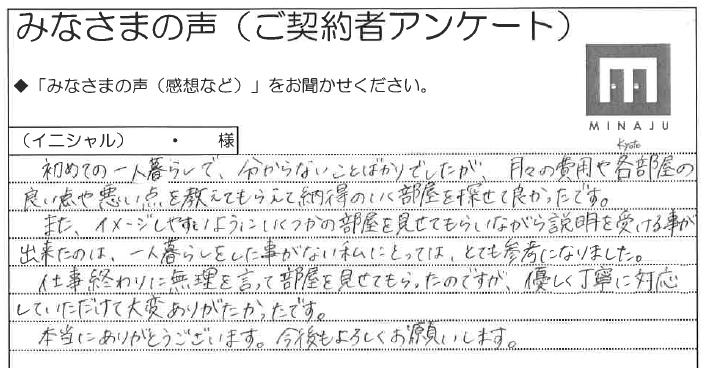 みなさまの声（ご契約者アンケート）
◆「みなさまの声（感想など）」をお聞かせください。
MINAJU
Kyoto
（イニシャル）　・　様
初めての一人暮らしで、分からないことばかりでしたが、月々の費用や各部屋の
良い点や悪い点を教えてもらえて納得のいく部屋を探せて良かったです。
また、イメージしやすいようにいくつかの部屋を見せてもらいながら説明を受ける事が
出来たのは、一人暮らしをした事がない私にとっては、とても参考になりました。
仕事終わりに無理を言って部屋を見せてもらったのですが、優しく丁寧に対応
していただけて大変ありがたかったです。
本当にありがとうございます。今後もよろしくお願いします。